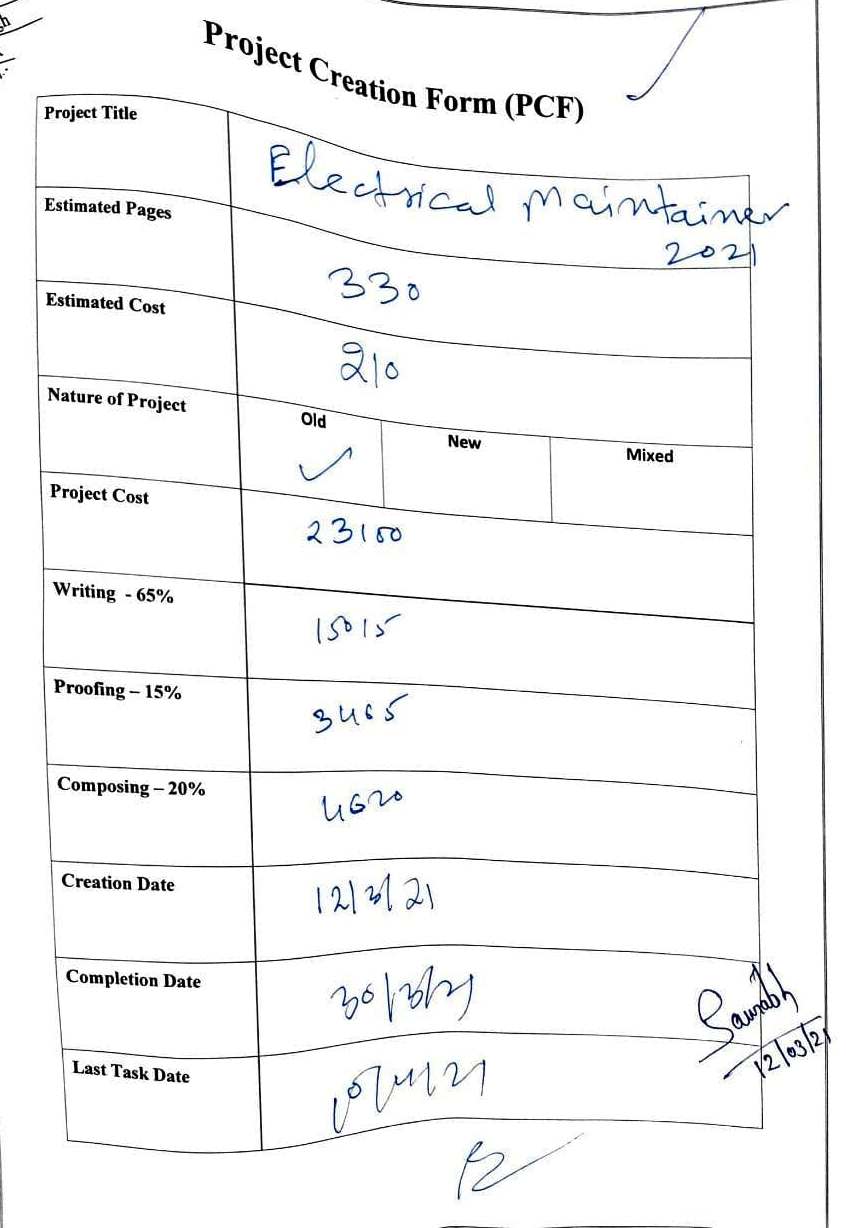 Project Creation Form (PCF)
Project Title
Electrical Maintainer
2021
Estimated Pages
330
Estimated Cost
210
Nature of Project
Old New Mixed
Project Cost
23100
Writing - 65%
15015
Proofing – 15%
3465
Composing – 20%
4620
Creation Date
12/3/21
Completion Date
30/3/21
Saurabh
12/03/21
Last Task Date